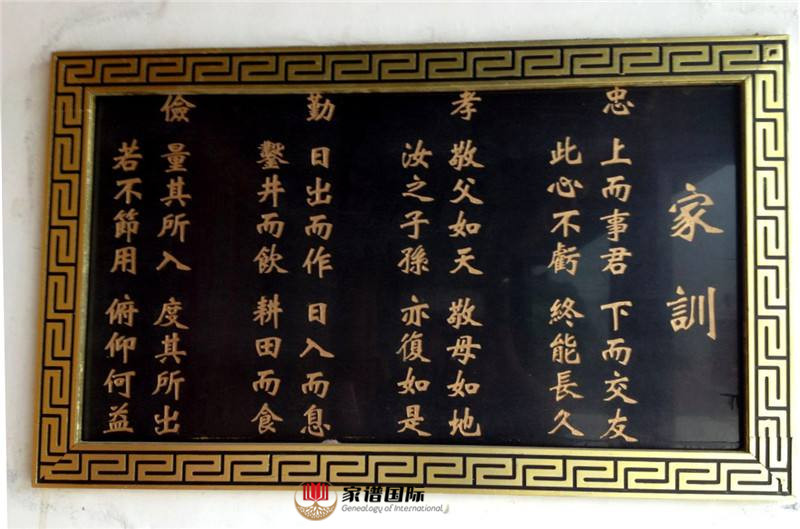 家訓
忠
上而事君 下而交友
此心不虧 終能長久
孝
敬父如天 敬母如地
汝之子孫 亦復如是
勤
日出而作 日入而息
鑿井而飲 耕田而食
儉
量其所入 度其所出
若不節用 俯仰何益
家谱国际
Genealogy of International